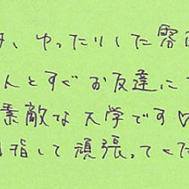 す、ゆったりした雰
んとすぐお友達に
素敵な大学です♡
指して頑張ってくだ